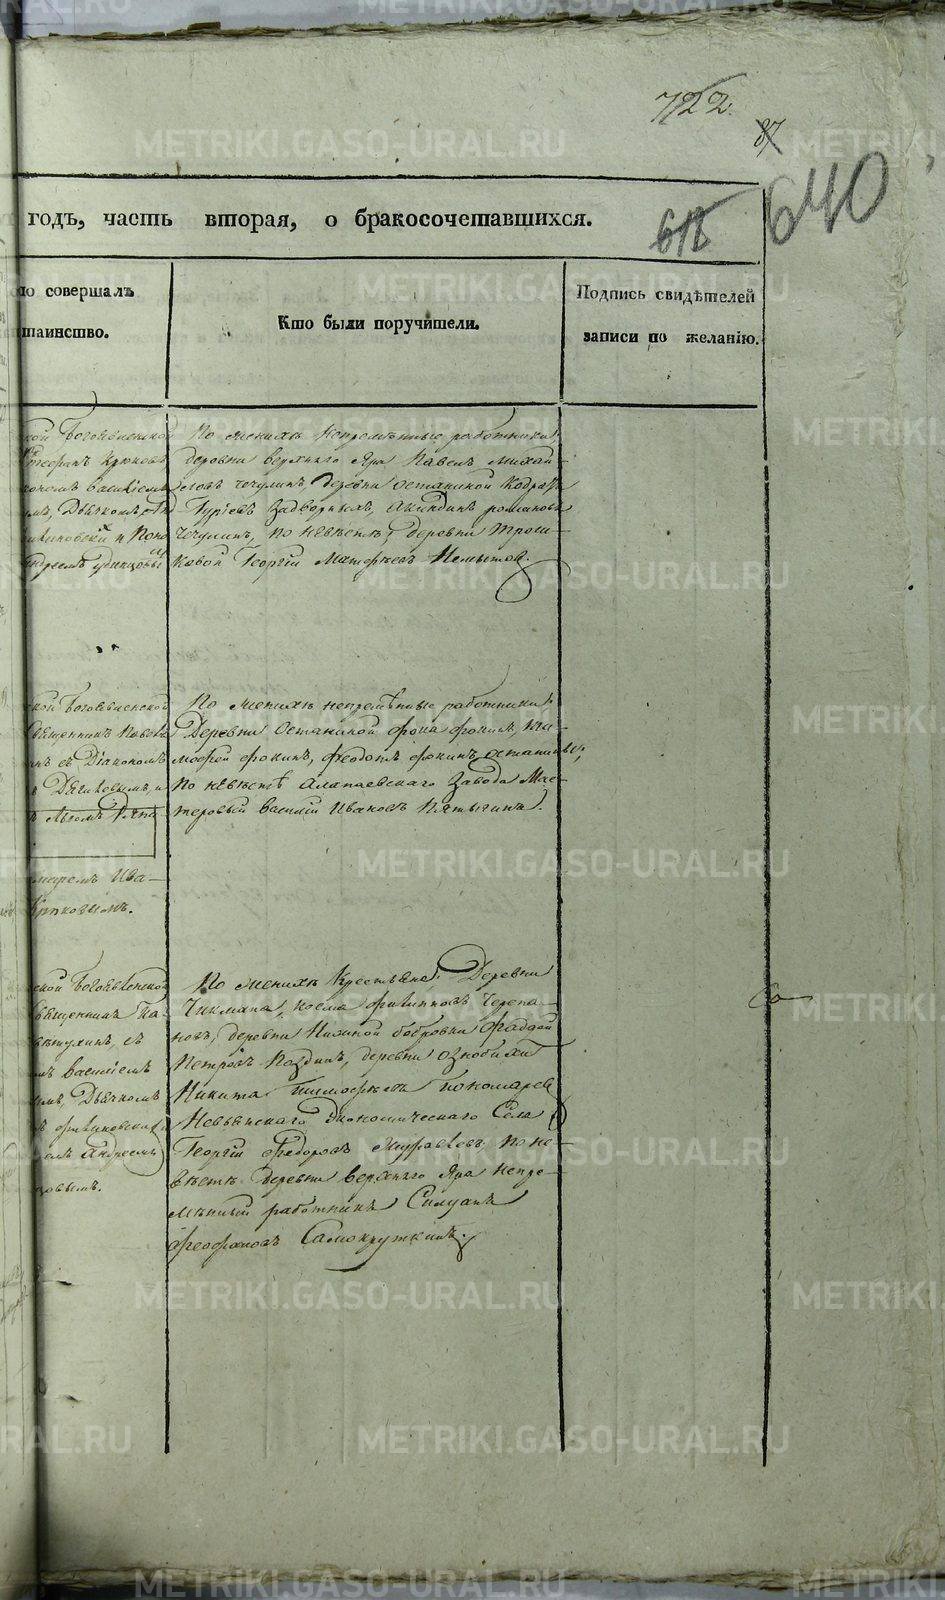 722.
87
640
618
годъ, часть вторая, о бракосочетавшихся.
то совершалъ
таинство.
Кто были поручители.
Подпись свидѣтелей
записи по желанію.
кой Богоявленской
Стефанъ Крюковъ
кономъ Василіемъ
мъ, Дьячкомъ
и Поно
Андреемъ Удинцовы
По женихѣ Непремѣнные работники,
деревни верхняго Яра Павелъ Михай
ловъ Чечулинъ деревни Останиной Кодратъ
Гурьевъ Задворныхъ, Акиндинъ романовъ
Чечулинъ, по невѣстѣ, деревни Троши
ковой Георгій Матфѣевъ Немытов
ской Богоявленской
Священникъ Павелъ
съ Діакономъ
По женихѣ непремѣнные работники
Деревни Останиной фока фокинъ, ти
мофей фокинъ, федотъ фокинъ останины;
По невѣстѣ Алапаевскаго Завода Мас
теровый Василій Ивановъ Пятыгинъ.
маремъ Ива
ской Богоявленской
священникъ Па
съ
мъ Василіемъ
мъ, Дьячкомъ
емъ Андреемъ
цовымъ.
По женихѣ Крестьяне, Деревни
Чикмана, козма филиповъ Черепа
новъ, деревни Нижней бобровки фадей
Петровъ Поздинъ, деревни ознобихи
Никита Тимофѣевъ пономаревъ
Невьянскаго экономическаго Села
Георгій Федоровъ Журавлевъ по не
вѣстѣ деревни Верхняго Яра непре
мѣнный работникъ Силуанъ
феофановъ Самокруткинъ.
METRIKI.GASO-URAL.RU